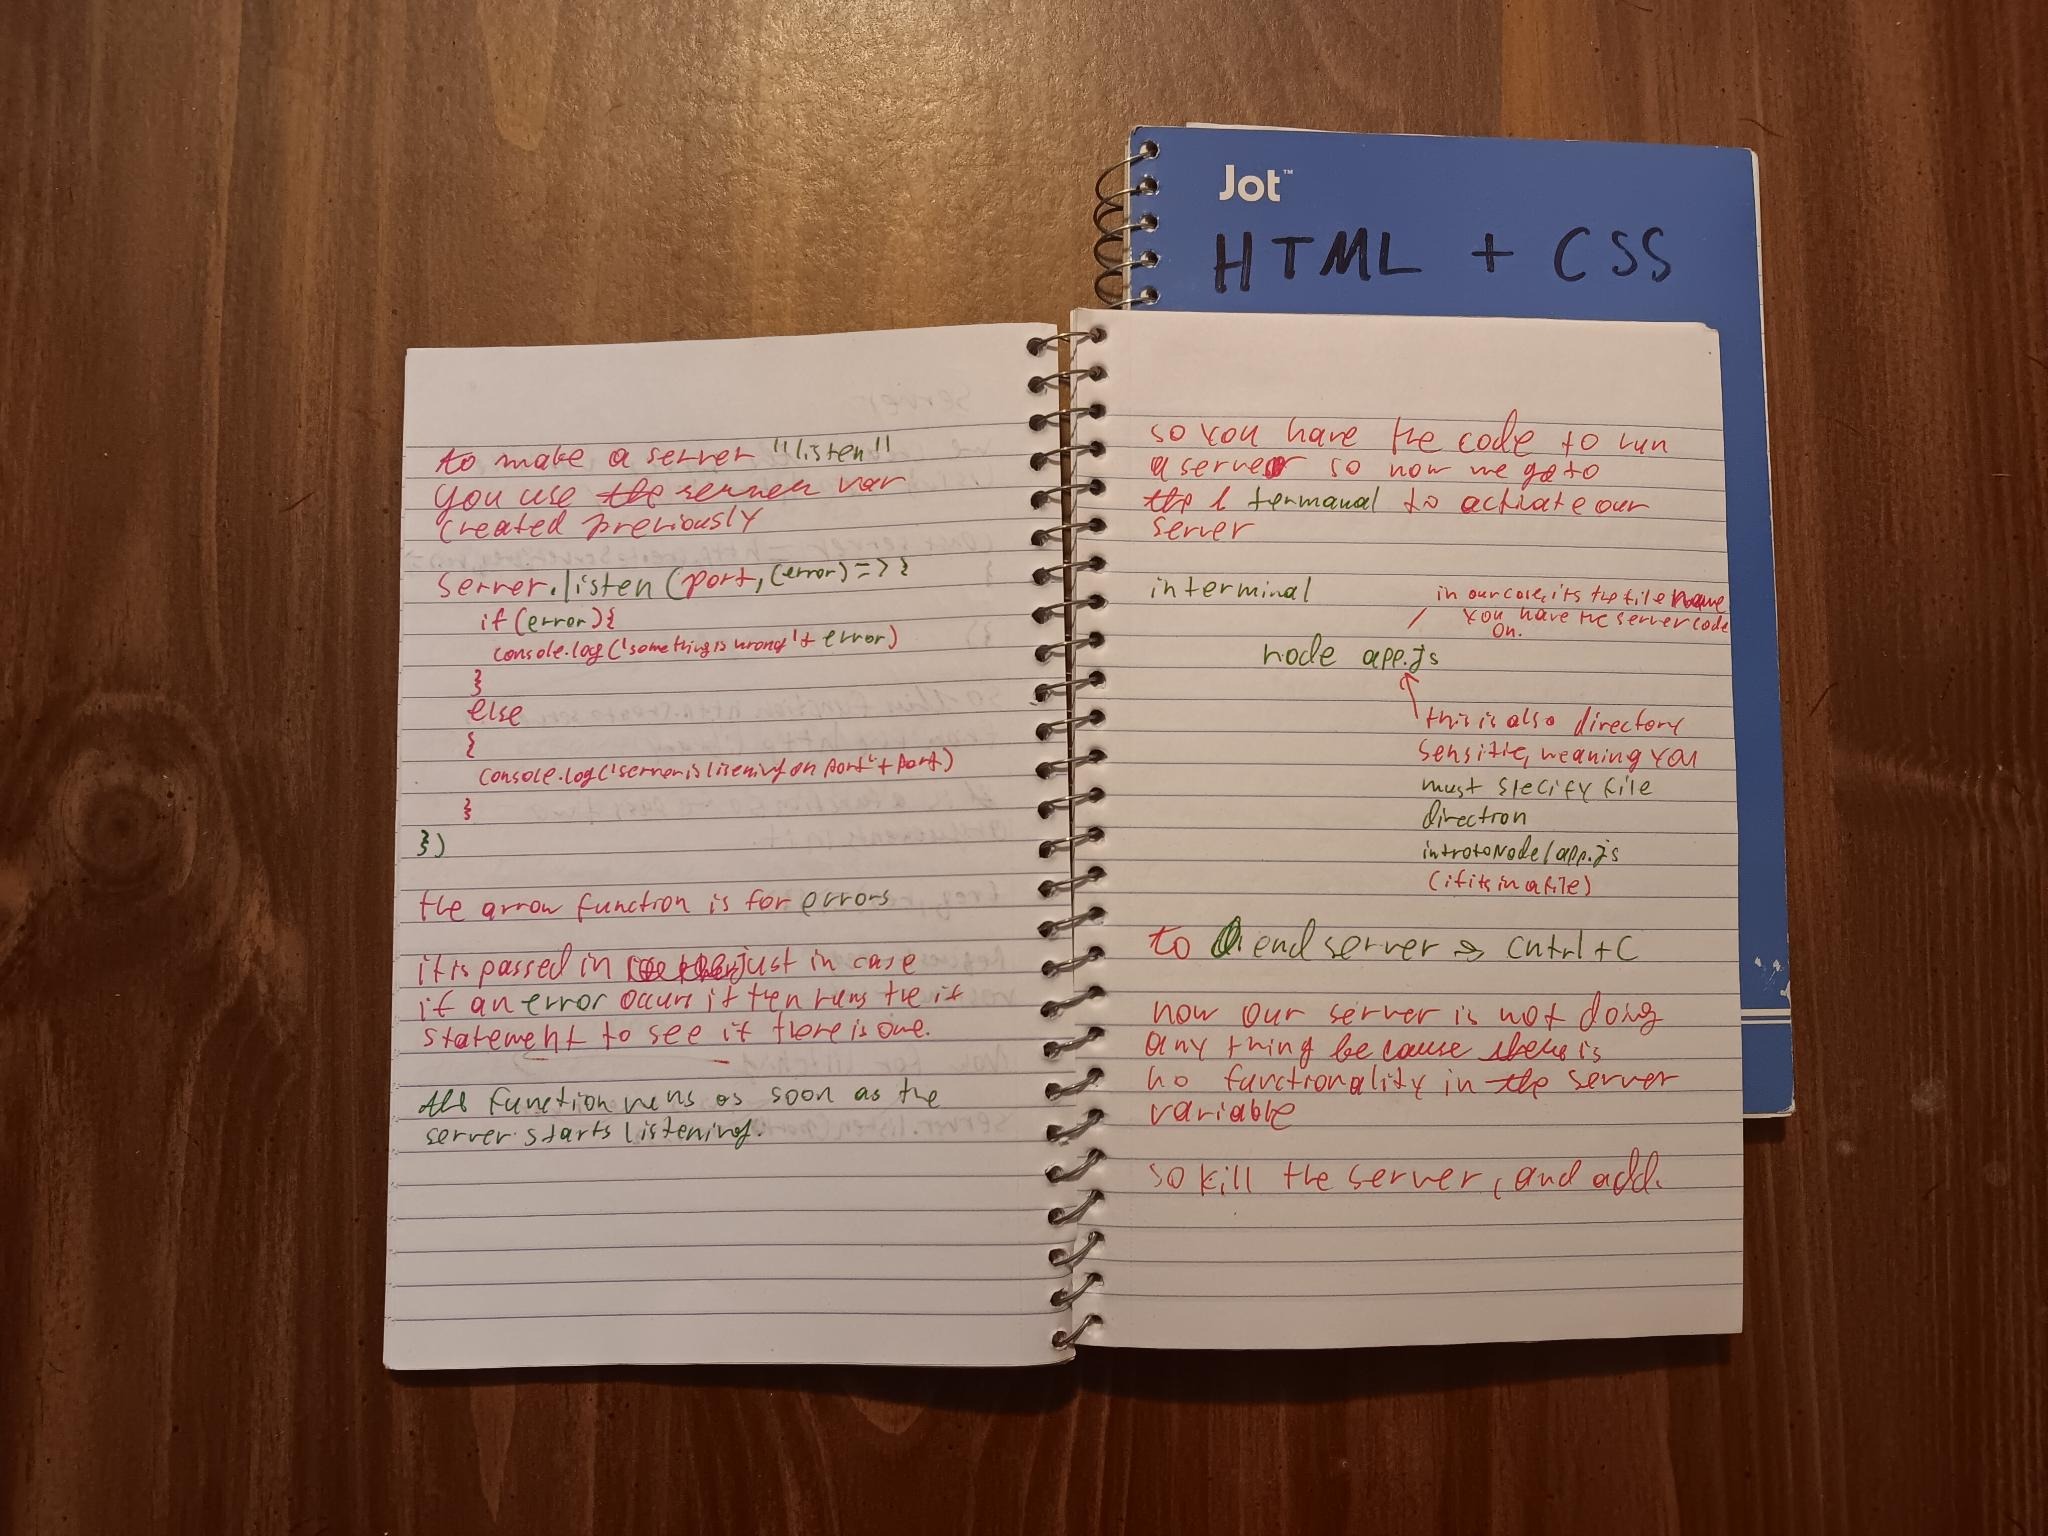 Jot™
HTML + CSS
to make a server "listen"
you use the server var
created previously
server.listen (port, (error) => {
if (error) {
console.log ('something is wrong' + error)
}
else
{
console.log ('server is listening on port' + port)
}
})
the arrow function is for errors
it is passed in just in case
if an error occurs it then runs the if
statement to see if there is one.
function runs as soon as the
server starts listening.
so you have the code to run
a server so now we go to
the termanal to activate our
server
in terminal
in our case, its the file name
you have the server code
on.
node app.js
this is also directory
sensitive, meaning you
must specify file
direction
introtoNode/app.js
(if its in a file)
to end server → cntrl + C
now our server is not doing
any thing because there is
no functionality in the server
variable
so kill the server, and add.